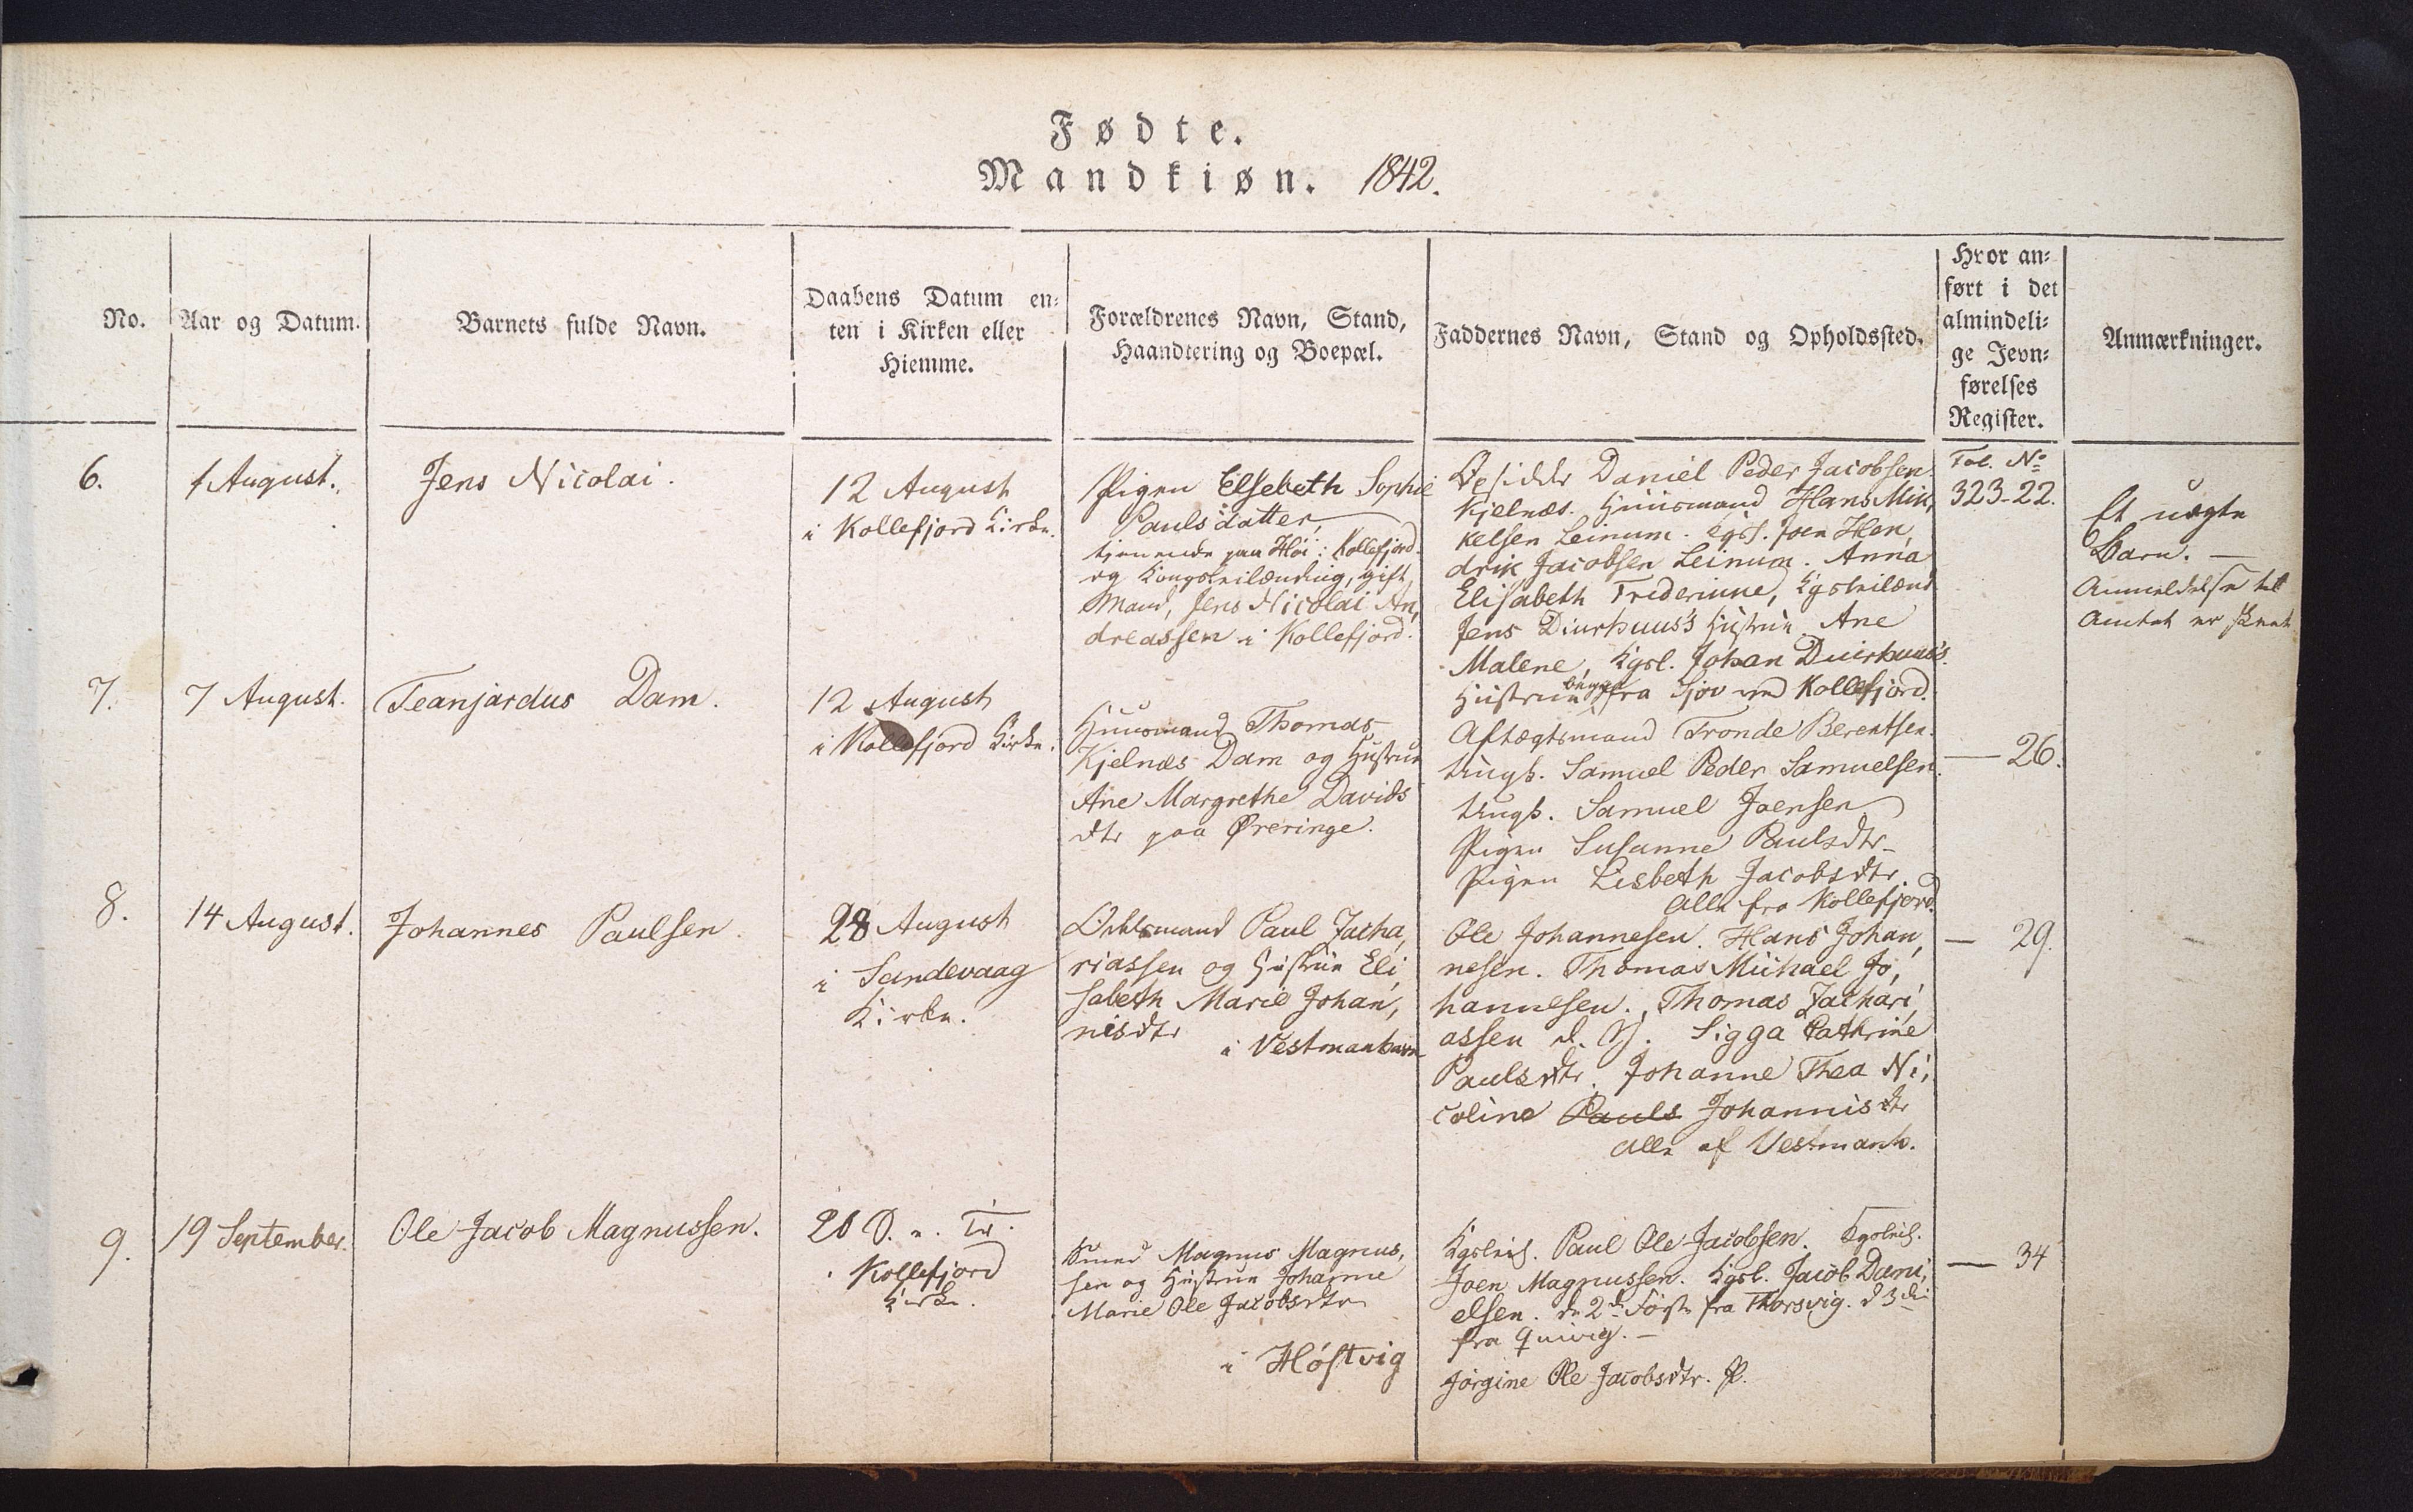 Fødte.
Mandkiøn. 1842.
No.
Aar og Datum.
Barnets fulde Navn.
Daabens Datum en-
ten i Kirken eller
Hiemme.
Forældrenes Navn, Stand,
Haandtering og Boepæl.
Faddernes Navn, Stand og Opholdssted.
Hvor an-
ført i det
almindeli-
ge Jevn-
førelses
Register.
Anmærkninger.
6.
1 August.
Jens Nicolai.
12 August
i Kollefjord Kirke.
Pigen Elsebeth Sophie
Paulsdatter,
tjenende paa Høi i Kollefjord
og Kongsleilænding, gift
Mand, Jens Nicolai An,
dreassen i Kollefjord.
Opsidder Daniel Peder Jacobsen
Kjelnæs. Huusmand Hans Mik,
kelsen Leinum. Kgsl. Joen Hen,
drik Jacobsen Leinum. Anna
Elisabeth Friderinne, Kgsleilænd
Jens Diurhuus's Hustrue Ane
Malene, Kgsl. Johan Duirhuus's
Hustrue begge fra Sjov ved Kollefjord.
Fol. No
323-22.
Et uægte
Barn. —
Anmeldelse til
Amtet er skeet
7.
7 August.
Teanjardus Dam.
12 August
i Kollefjord Kirke.
Huusmand Thomas
Kjelnæs Dam og Hustrue
Ane Margrethe Davids
dtr paa Øreringe.
Aftægtsmand Tronde Berentsen.
Ungk. Samuel Peder Samuelsen.
Ungk. Samuel Joensen
Pigen Susanne Paulsdtr-
Pigen Lisbeth Jacobsdtr.
alle fra Kollefjord.
— 26.
8.
14 August.
Johannes Paulsen.
28 August
i Sandevaag
Kirke.
Odelsmand Paul Zacha,
riassen og Hustrue Eli
sabeth Marie Johan,
nisdtr
i Vestmanhavn
Ole Johannesen. Hans Johan,
nesen. Thomas Michael Jo,
hannesen. Thomas Zachari,
assen d. Y. Sigga Cathrine
Paulsdtr. Johanne Thea Ni,
coline Pauls Johannisdtr
alle af Vestmanh.
— 29.
9.
19 September.
Ole Jacob Magnussen.
20 S. e. Tr.
i Kollefjord
Kirke.
Magnus Magnus,
sen og Hustrue Johanne
Marie Ole Jacobsdtr
i Hóstvig
Kgsleil. Paul Ole Jacobsen. Kgsleil.
Joen Magnussen. Kgsl. Jacob Dani,
elsen. de 2de Første fra Thorsvig. d 3die
fra Qvivig. —
Jørgine Ole Jacobsdtr. P.
— 34